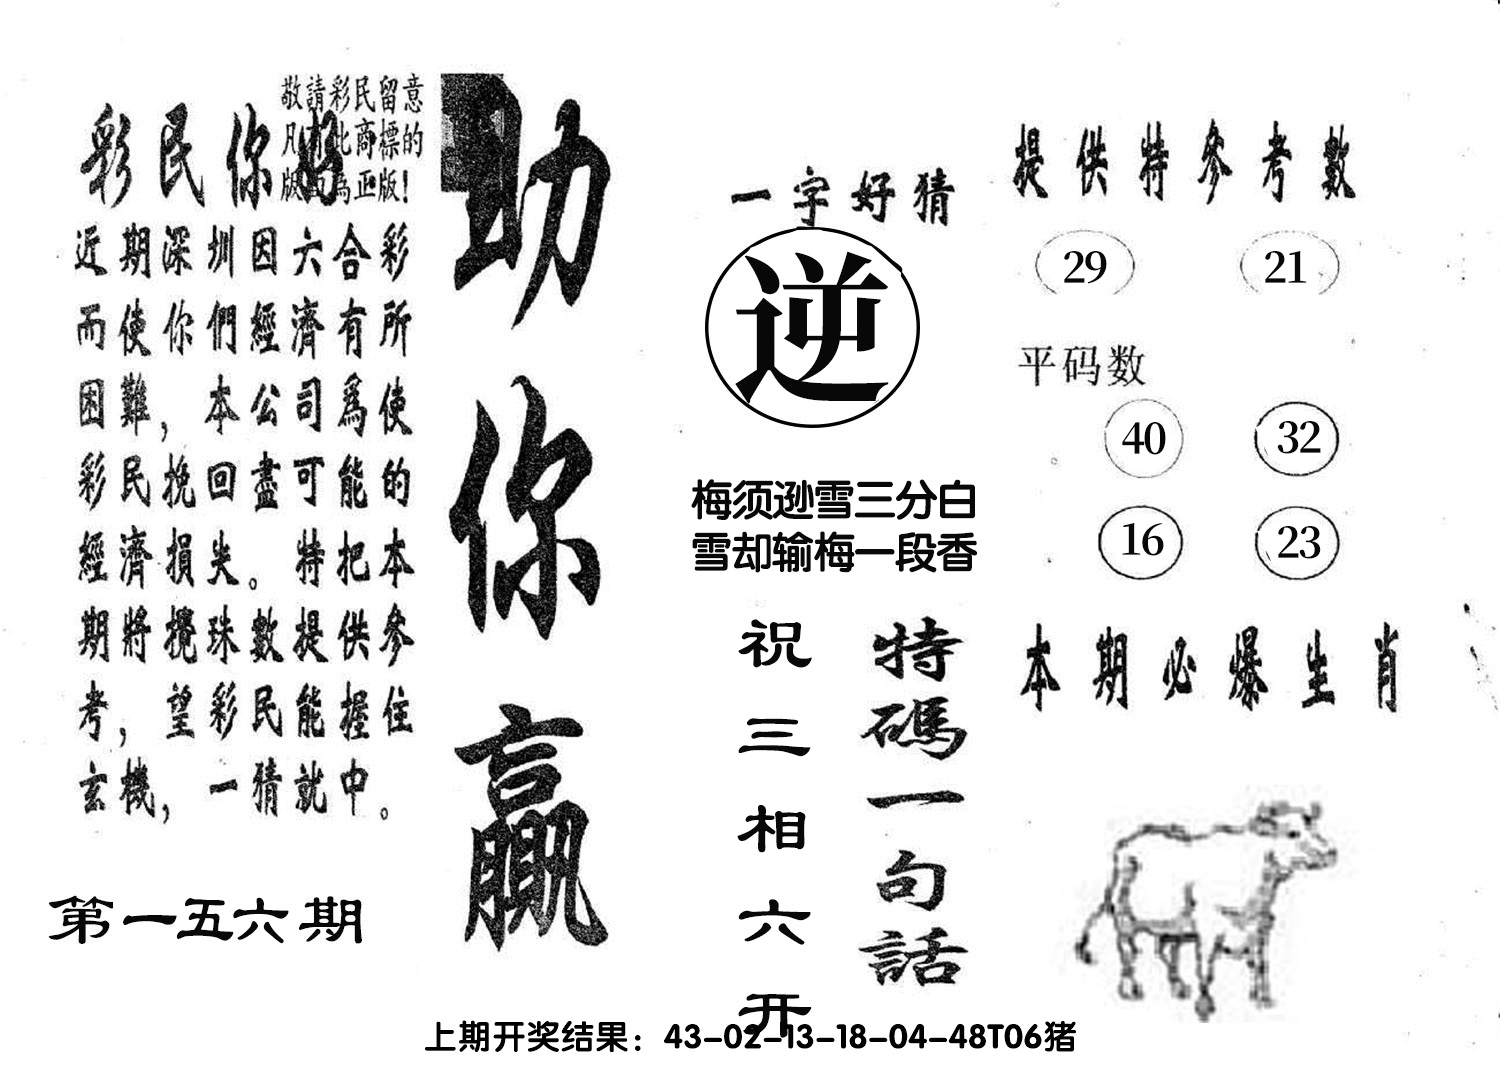 敬請彩民留意
凡有此商標的
版面為正版！
彩民你好
近期深圳因六合彩
而使你們經濟有所
困難，本公司爲使
彩民挽回盡可能的
經濟損失。特把本
期將攪珠數提供參
考，望彩民能握住
玄機，一猜就中。
第一五六期
助你贏
一字好猜
逆
梅须逊雪三分白
雪却输梅一段香
特碼一句話
祝三相六开
提供特參考數
29 21
平码数
40 32
16 23
本期必爆生肖
上期开奖结果：43-02-13-18-04-48T06猪